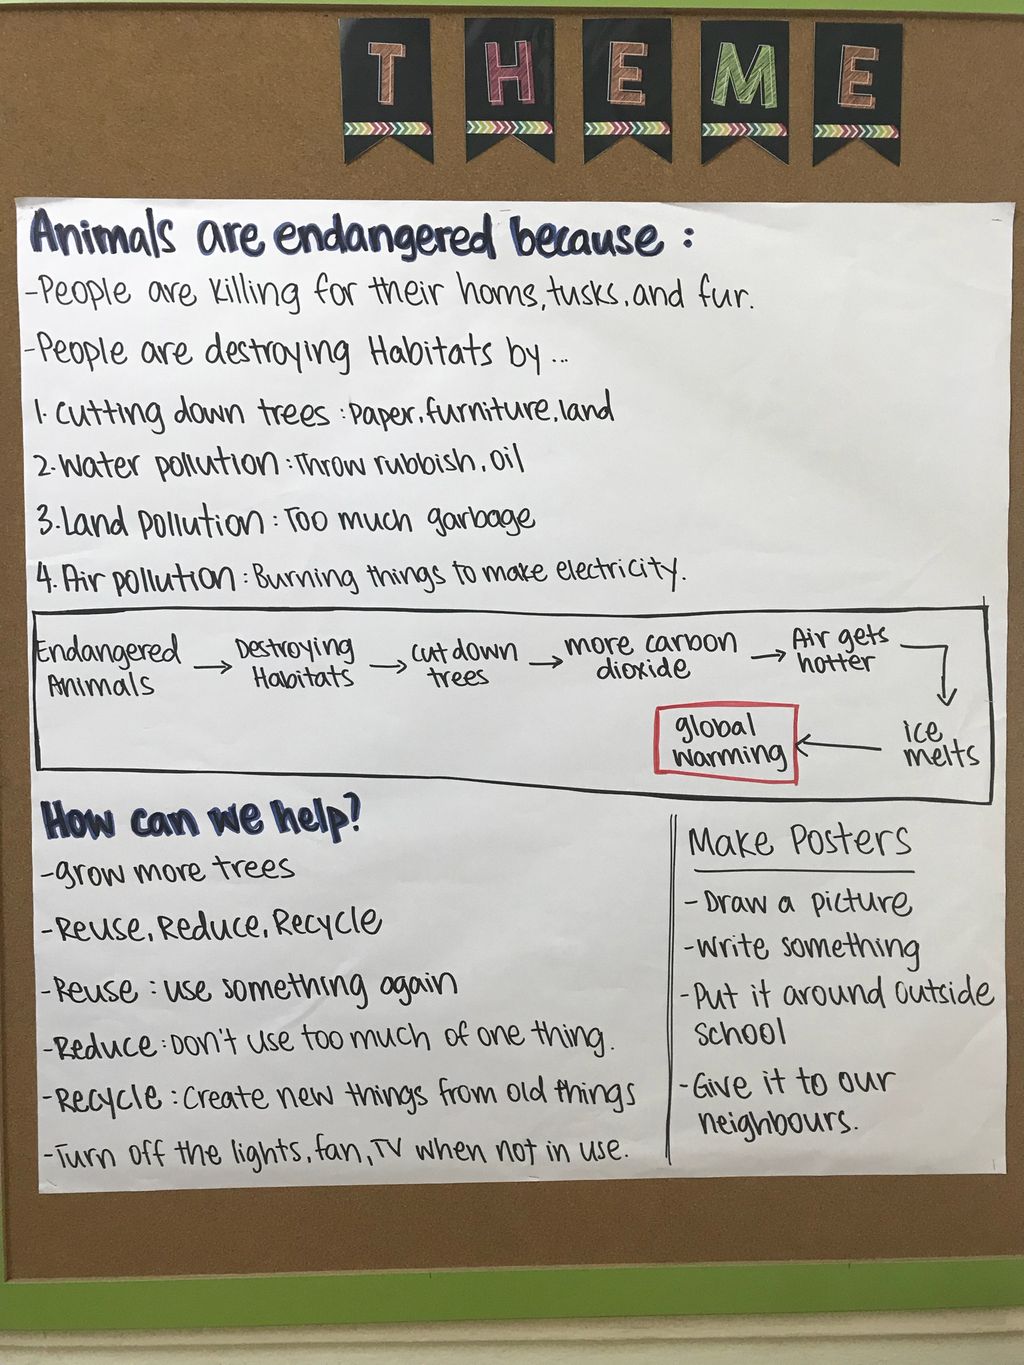 THEME
Animals are endangered because :
-People are killing for their horns, tusks, and fur.
-People are destroying Habitats by ...
1. Cutting down trees : Paper, furniture, land
2. Water pollution : Throw rubbish, oil
3. Land pollution : Too much garbage
4. Air pollution : Burning things to make electricity.
Endangered Animals → Destroying Habitats → cut down trees → more carbon dioxide → Air gets hotter
ice melts
global warming
How can we help?
-grow more trees
-Reuse, Reduce, Recycle
-Reuse : use something again
-Reduce : Don't use too much of one thing.
-Recycle : Create new things from old things
-Turn off the lights, fan, TV when not in use.
Make Posters
- Draw a picture
-Write something
-Put it around outside
school
-Give it to our
neighbours.